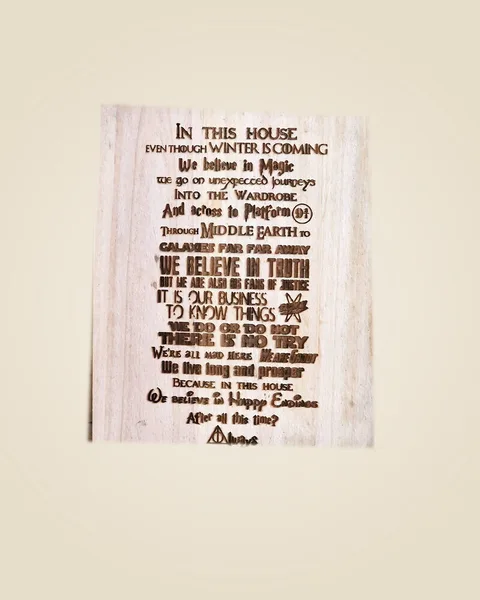 IN THIS HOUSE
EVEN THOUGH WINTER IS COMING
We believe in Magic
we go on unexpected journeys
INTO THE WARDROBE
And across to Platform
THROUGH MIDDLE EARTH TO
GALAXIES FAR FAR AWAY
WE BELIEVE IN TRUTH
BUT WE ARE ALSO BIG FANS OF JUSTICE
IT IS OUR BUSINESS
TO KNOW THINGS
WE DO OR DO NOT
THERE IS NO TRY
WE'RE ALL MAD HERE WE ARE GROOT
We live long and prosper
BECAUSE IN THIS HOUSE
We believe in Happy Endings
After all this time?
Always